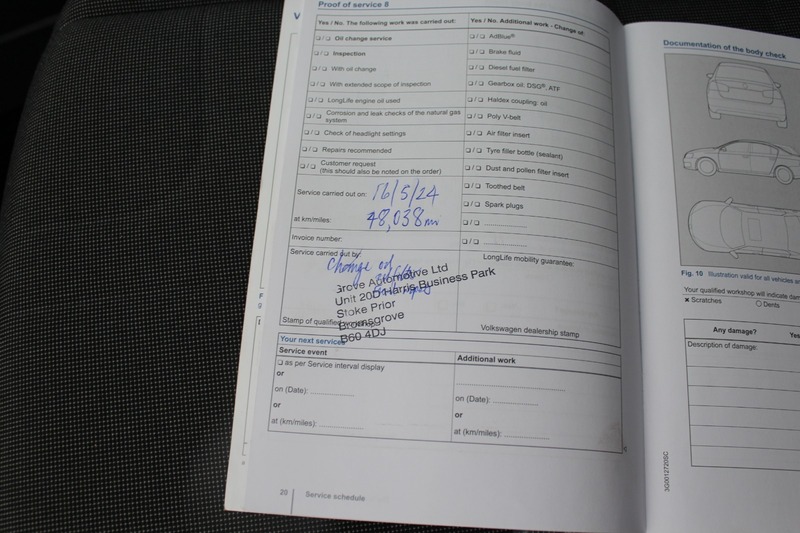 Proof of service 8
Yes / No. The following work was carried out:
❑ / ❑ Oil change service
❑ / ❑ Inspection
❑ / ❑ With oil change
❑ / ❑ With extended scope of inspection
❑ / ❑ LongLife engine oil used
❑ / ❑ Corrosion and leak checks of the natural gas
system
❑ / ❑ Check of headlight settings
❑ / ❑ Repairs recommended
❑ / ❑ Customer request
(this should also be noted on the order)
Yes / No. Additional work - Change of:
❑ / ❑ AdBlue®
❑ / ❑ Brake fluid
❑ / ❑ Diesel fuel filter
❑ / ❑ Gearbox oil, DSG®, ATF
❑ / ❑ Haldex coupling: oil
❑ / ❑ Poly V-belt
❑ / ❑ Air filter insert
❑ / ❑ Tyre filler bottle (sealant)
❑ / ❑ Dust and pollen filter insert
❑ / ❑ Toothed belt
❑ / ❑ Spark plugs
❑ / ❑ ....................
❑ / ❑ ....................
Service carried out on: 16/5/24
at km/miles: 48,038mi
Invoice number:
Service carried out by:
Change oil
Grove Automotive Ltd
Unit 20D Harris Business Park
Stoke Prior
Bromsgrove
B60 4DJ
Stamp of qualified
LongLife mobility guarantee:
Volkswagen dealership stamp
Your next services
Service event
❑ as per Service interval display
or
on (Date): ....................
or
at (km/miles): ....................
Additional work
on (Date): ....................
or
at (km/miles): ....................
20 Service schedule
Documentation of the body check
Fig. 10 Illustration valid for all vehicles
Your qualified workshop will indicate
× Scratches ❑ Dents
Any damage?
Description of damage:
3G0012720SC